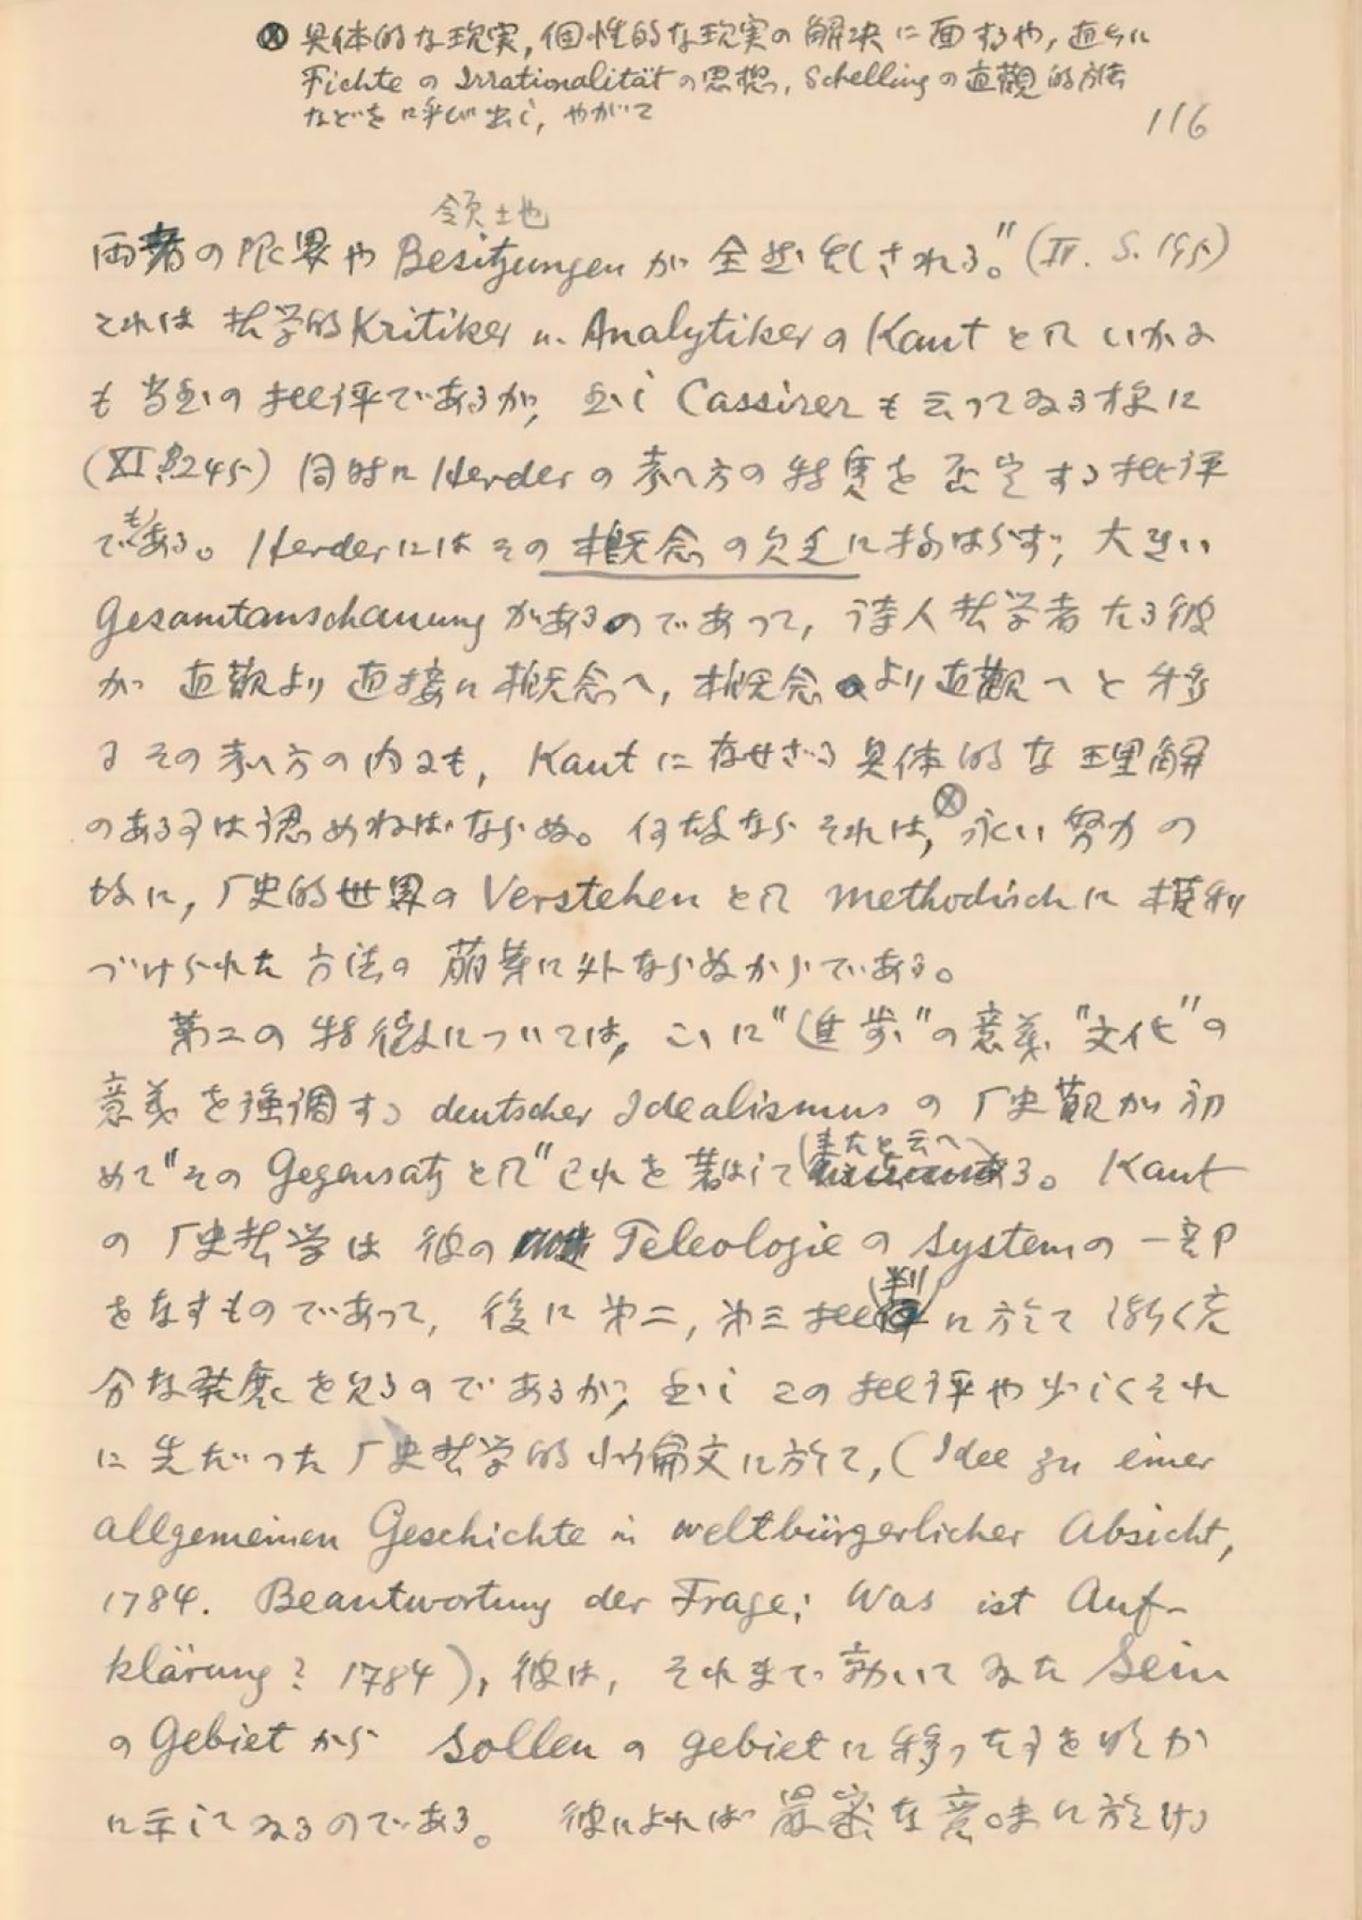 Ⓧ 具体的な現実, 個性的な現実の解決に面するや, 直ちに
Fichte の Irrationalität の思想, Schelling の直観的方法
などを呼び出し, やがて
116
領土也
両者の限界や Besitzungen が全然乱される。" (IV. S. 195)
これは 哲学的 Kritiker u. Analytiker の Kant としていかに
も当然の批評であるが, 然し Cassirer も云ってゐる様に
(XI. S245) 同時に Herder の考へ方の特質を否定する批評
でもある。 Herder にはその概念の欠乏に拘はらず, 大きい
Gesamtanschauung があるのであって, 詩人哲学者たる彼
が 直観より直接に概念へ, 概念より直観へと移
るその考へ方の内にも, Kant に存せざる具体的な理解
のあるヿは認めねばならぬ。 何故なら それは, Ⓧ 永い努力の
故に, 歴史的世界の Verstehen として methodisch に権利
づけられた 方法の 萌芽に外ならぬからである。
第二の特徴については, こゝに "進歩" の意義 "文化" の
意義を強調する deutscher Idealismus の 歴史観が初
めて "その Gegensatz として" これを著はして(来たと云へ)る。 Kant
の 歴史哲学は 彼の Teleologie の System の一部
をなすものであって, 後に 第二, 第三批(判)に於て 漸く充
分な発展を見るのであるが, 然し この批評や少しくそれ
に先だった 歴史哲学的小論文に於て, (Idee zu einer
allgemeinen Geschichte in weltbürgerlicher Absicht,
1784. Beantwortung der Frage; Was ist Auf-
klärung? 1784), 彼は, それまで 効いてゐた Sein
の Gebiet から Sollen の gebiet に移ったヿを明か
に示してゐるのである。 彼によれば 厳密な意味に於ける